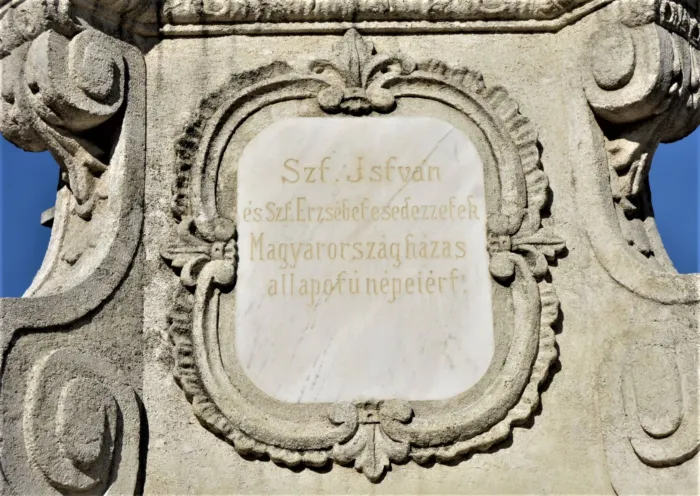 Szt. István
és Szt. Erzsébet esedezzetek
Magyarország házas
állapotú népeiért!